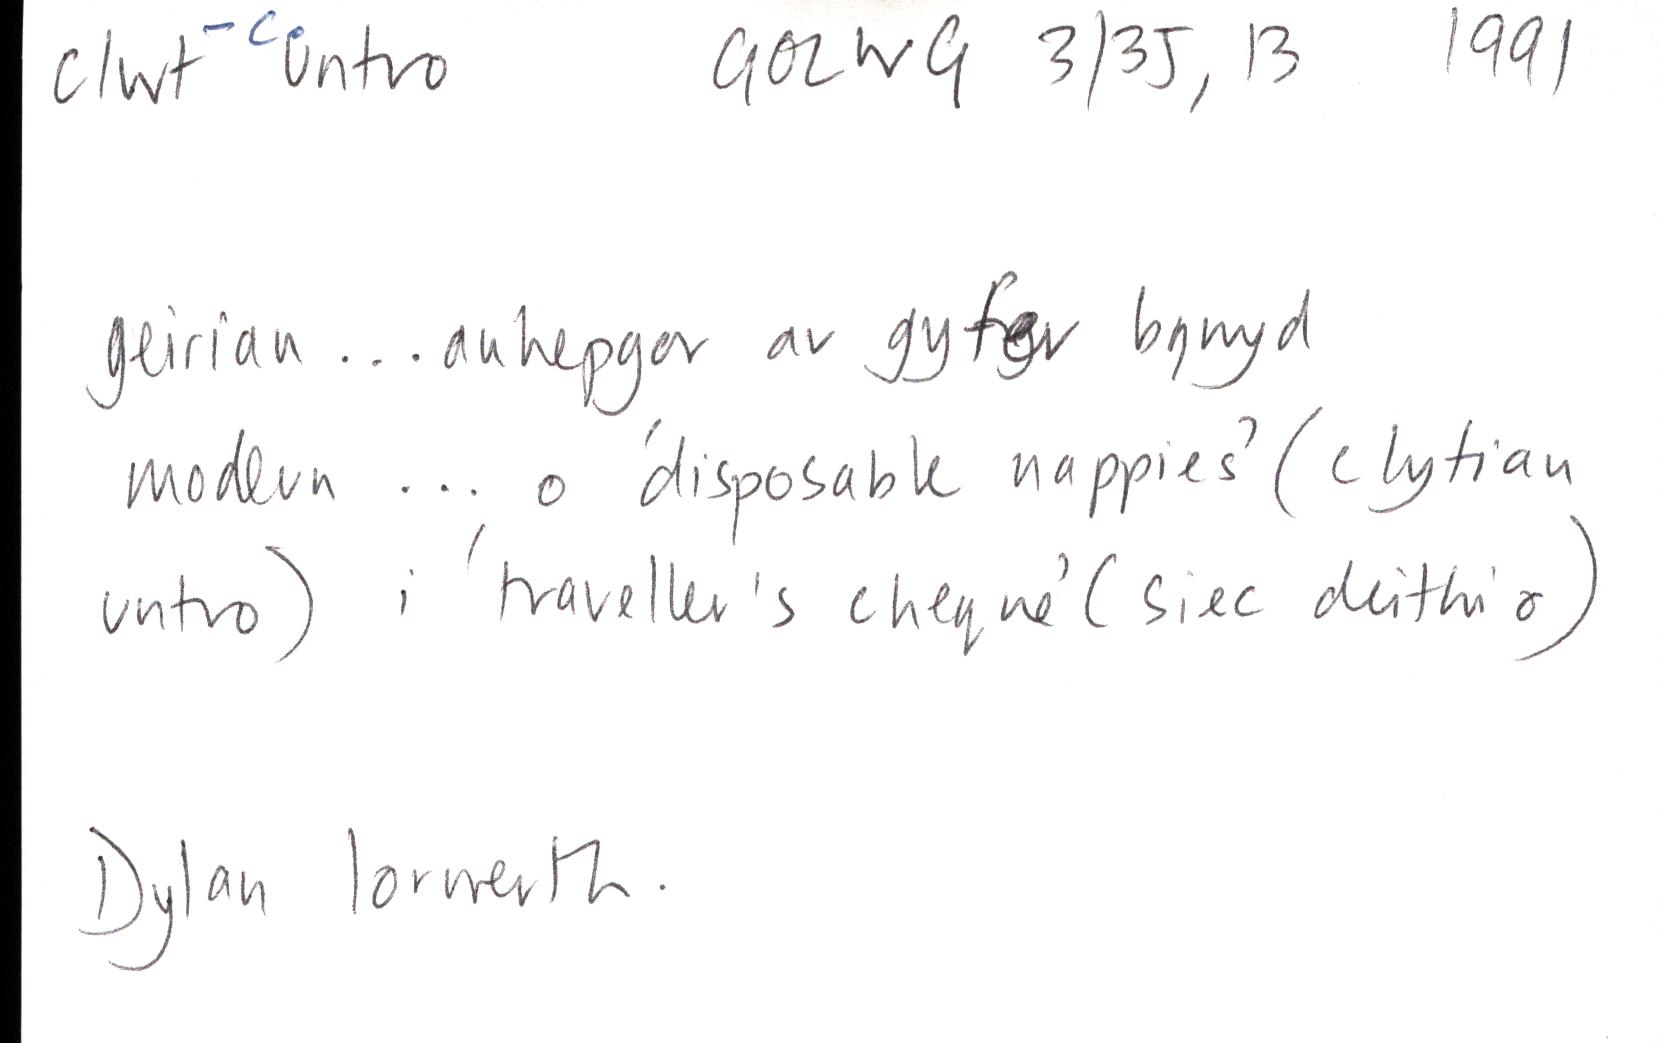 clwt - c. untro GOLWG 3/35, 13 1991
geiriau ... anhepgor ar gyfer bywyd
modern ... o 'disposable nappies' (clytiau
untro) i 'traveller's cheque' (siec deithio)
Dylan Iorwerth.